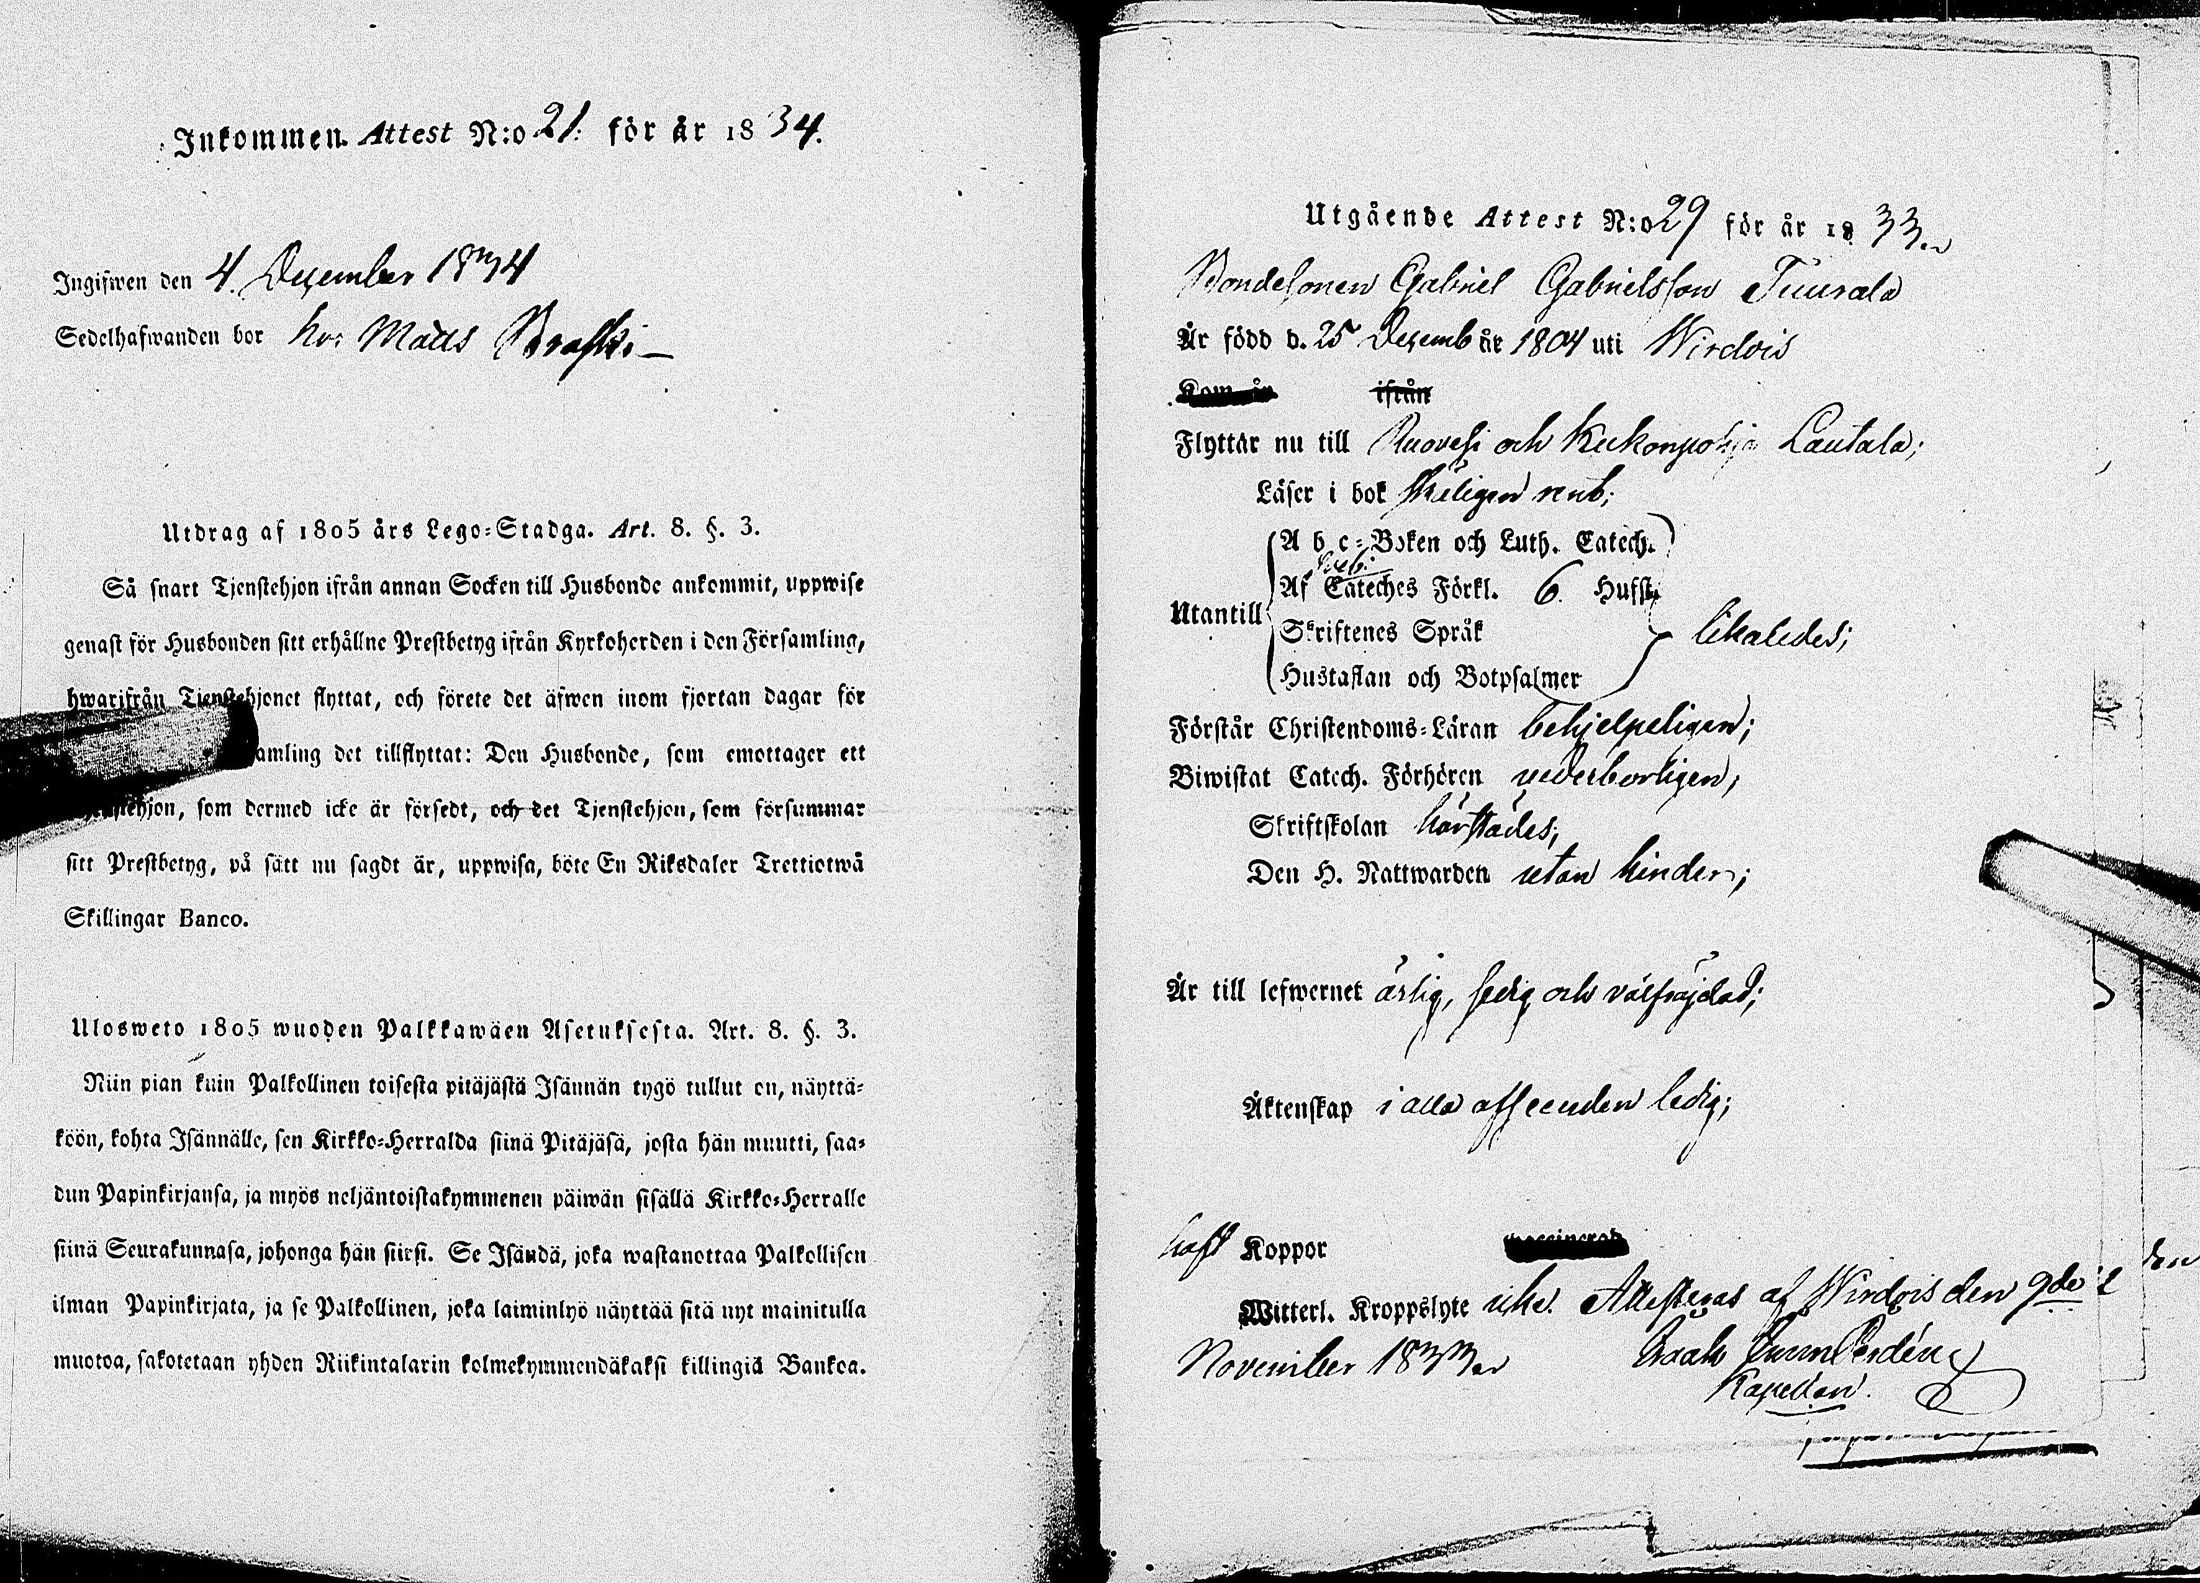 Inkommen Attest N:o 21. för år 1834.
Ingifwen den 4. December 1834
Sedelhafwanden bor hos Matts
Utdrag af 1805 års Lego-Stadga. Art. 8. §. 3.
Så snart Tjenstehjon ifrån annan Socken till Husbonde ankommit, uppwise
genast för Husbonden sitt erhållne Prestbetyg ifrån Kyrkoherden i den Församling,
hwarifrån Tjenstehjonet flyttat, och förete det äfwen inom fjortan dagar för
amling det tillflyttat: Den Husbonde, som emottager ett
stehjon, som dermed icke är försedt, och det Tjenstehjon, som försummar
sitt Prestbetyg, på sätt nu sagdt är, uppwisa, böte En Riksdaler Trettiotwå
Skillingar Banco.
Ulosweto 1805 wuoden Palkkawäen Asetuksesta. Art. 8. §. 3.
Niin pian kuin Palkollinen toisesta pitäjästä Isännän tygö tullut on, näyttä-
köön, kohta Isännälle, sen Kirkko-Herralda siinä Pitäjäsä, josta hän muutti, saa-
dun Papinkirjansa, ja myös neljäntoistakymmenen päiwän sisällä Kirkko-Herralle
siinä Seurakunnasa, johonga hän siirsi. Se Isändä, joka wastanottaa Palkollisen
ilman Papinkirjata, ja se Palkollinen, joka laiminlyö näyttää sitä nyt mainitulla
muotoa, sakotetaan yhden Riikintalarin kolmekymmendäkaksi killingiä Bankoa.
Utgående Attest N:o 29 för år 1833.
Bondesonen Gabriel Gabrielsson Tuurala
Är född d. 25 Decemb år 1804 uti Wirdois
Kom år ifrån
Flyttar nu till Ruovesi och Kukonpohja Lautala;
Läser i bok skäligen
A b c-Boken och Luth. Catech.
Af Cateches Förkl. 6. Hufst.
Utantill
Skriftenes Språk likaledes;
Hustaflan och Botpsalmer
Förstår Christendoms-Läran behjelpeligen;
Biwistat Catech. Förhören vederborligen;
Skriftskolan härstädes;
Den H. Nattwarden utan hinder;
Är till lefwernet ärlig, sedig och välfrejdad;
Äktenskap i alla afseenden ledig;
haft Koppor vaccinerad
Witterl. Kroppslyte icke. Attesteras af Wirdois den 9de
November 1833
Kapellan.